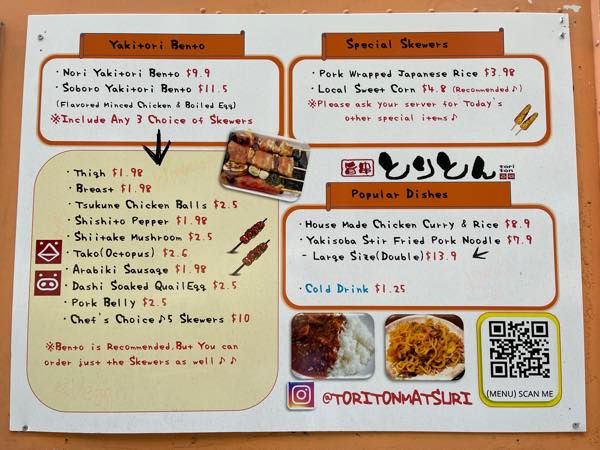 Yakitori Bento
・Nori Yakitori Bento $9.9
・Soboro Yakitori Bento $11.5
(Flavored Minced Chicken & Boiled Egg)
※Include Any 3 Choice of Skewers
・Thigh $1.98
・Breast $1.98
・Tsukune Chicken Balls $2.5
・Shishito Pepper $1.98
・Shiitake Mushroom $2.5
・Tako(Octopus) $2.6
・Arabiki Sausage $1.98
・Dashi Soaked QuailEgg $2.5
・Pork Belly $2.5
・Chef's Choice♪5 Skewers $10
※Bento is Recommended.But You can
order just the Skewers as well♪♪
Special Skewers
・Pork Wrapped Japanese Rice $3.98
・Local Sweet Corn $4.8 (Recommended♪)
※Please ask your server for Today's
other special items♪
とりとん
tori
ton
Popular Dishes
・House Made Chicken Curry & Rice $8.9
・Yakisoba Stir Fried Pork Noodle $7.9
- Large Size(Double)$13.9
・Cold Drink $1.25
@TORITONMATSURI
(MENU) SCAN ME